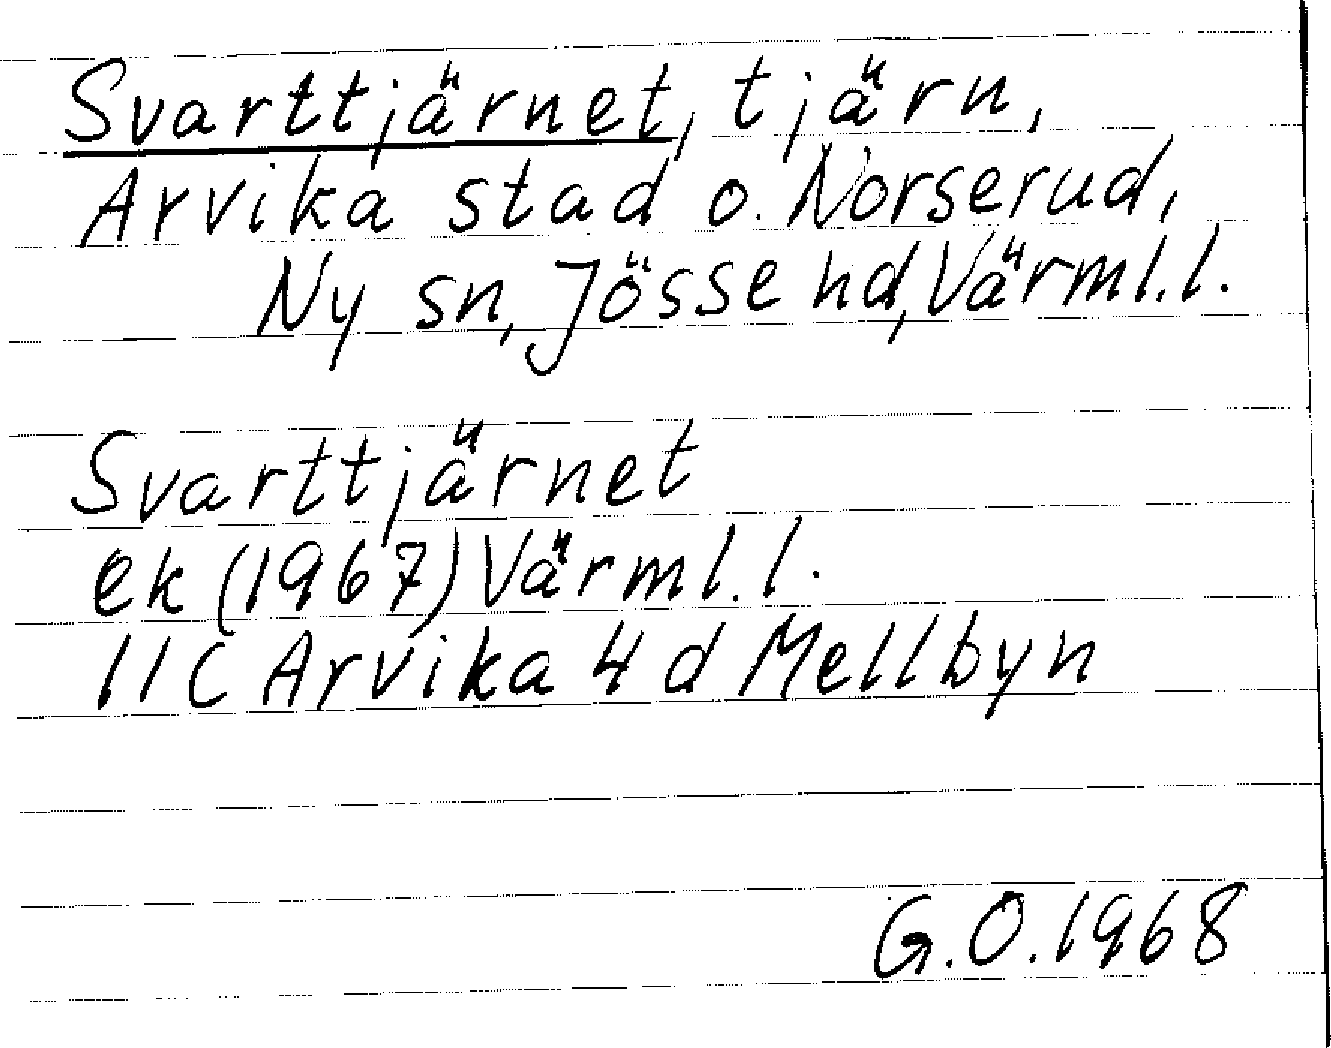 Svarttjärnet, tjärn,
Arvika stad o. Norserud,
Ny sn, Jösse hd, Värml.l.
Svarttjärnet
ek (1967) Värml.l.
11C Arvika 4 d Mellbyn
G.O. 1968